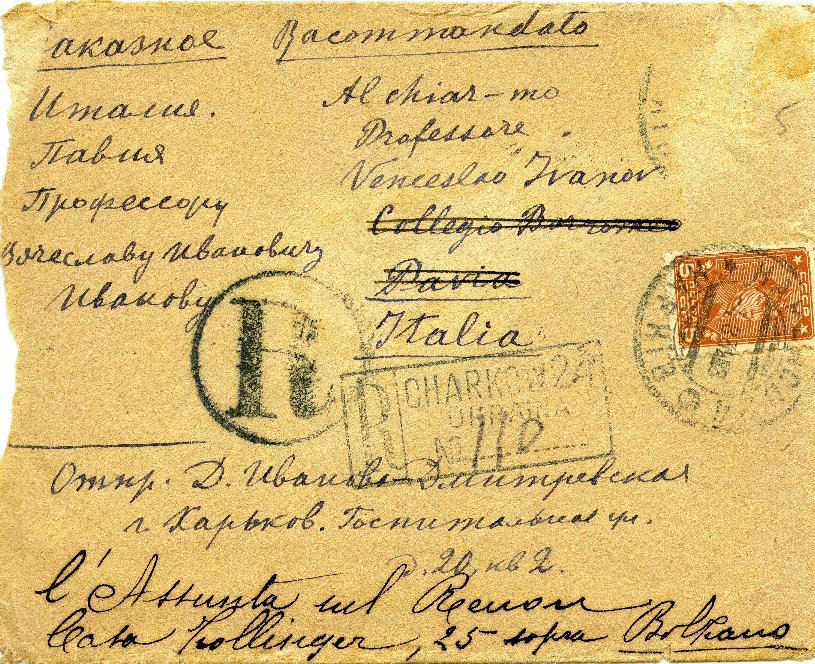 аказное Racommandato
Италия.
Павия
Профессору
Вячеславу Ивановичу
Иванову
Al chiar-mo
Professore
Venceslao Ivanov
Collegio Borromeo
Pavia
Italia
5
5 СССР
R
R CHARKOW 24
UKRAINA
No 110
Отпр. Д. Иванова-Дмитревская
г. Харьков. Госпитальная ул.
д. 20 кв 2.
l'Assunta sul Renon
Casa Hollinger, 25 sopra Bolzano